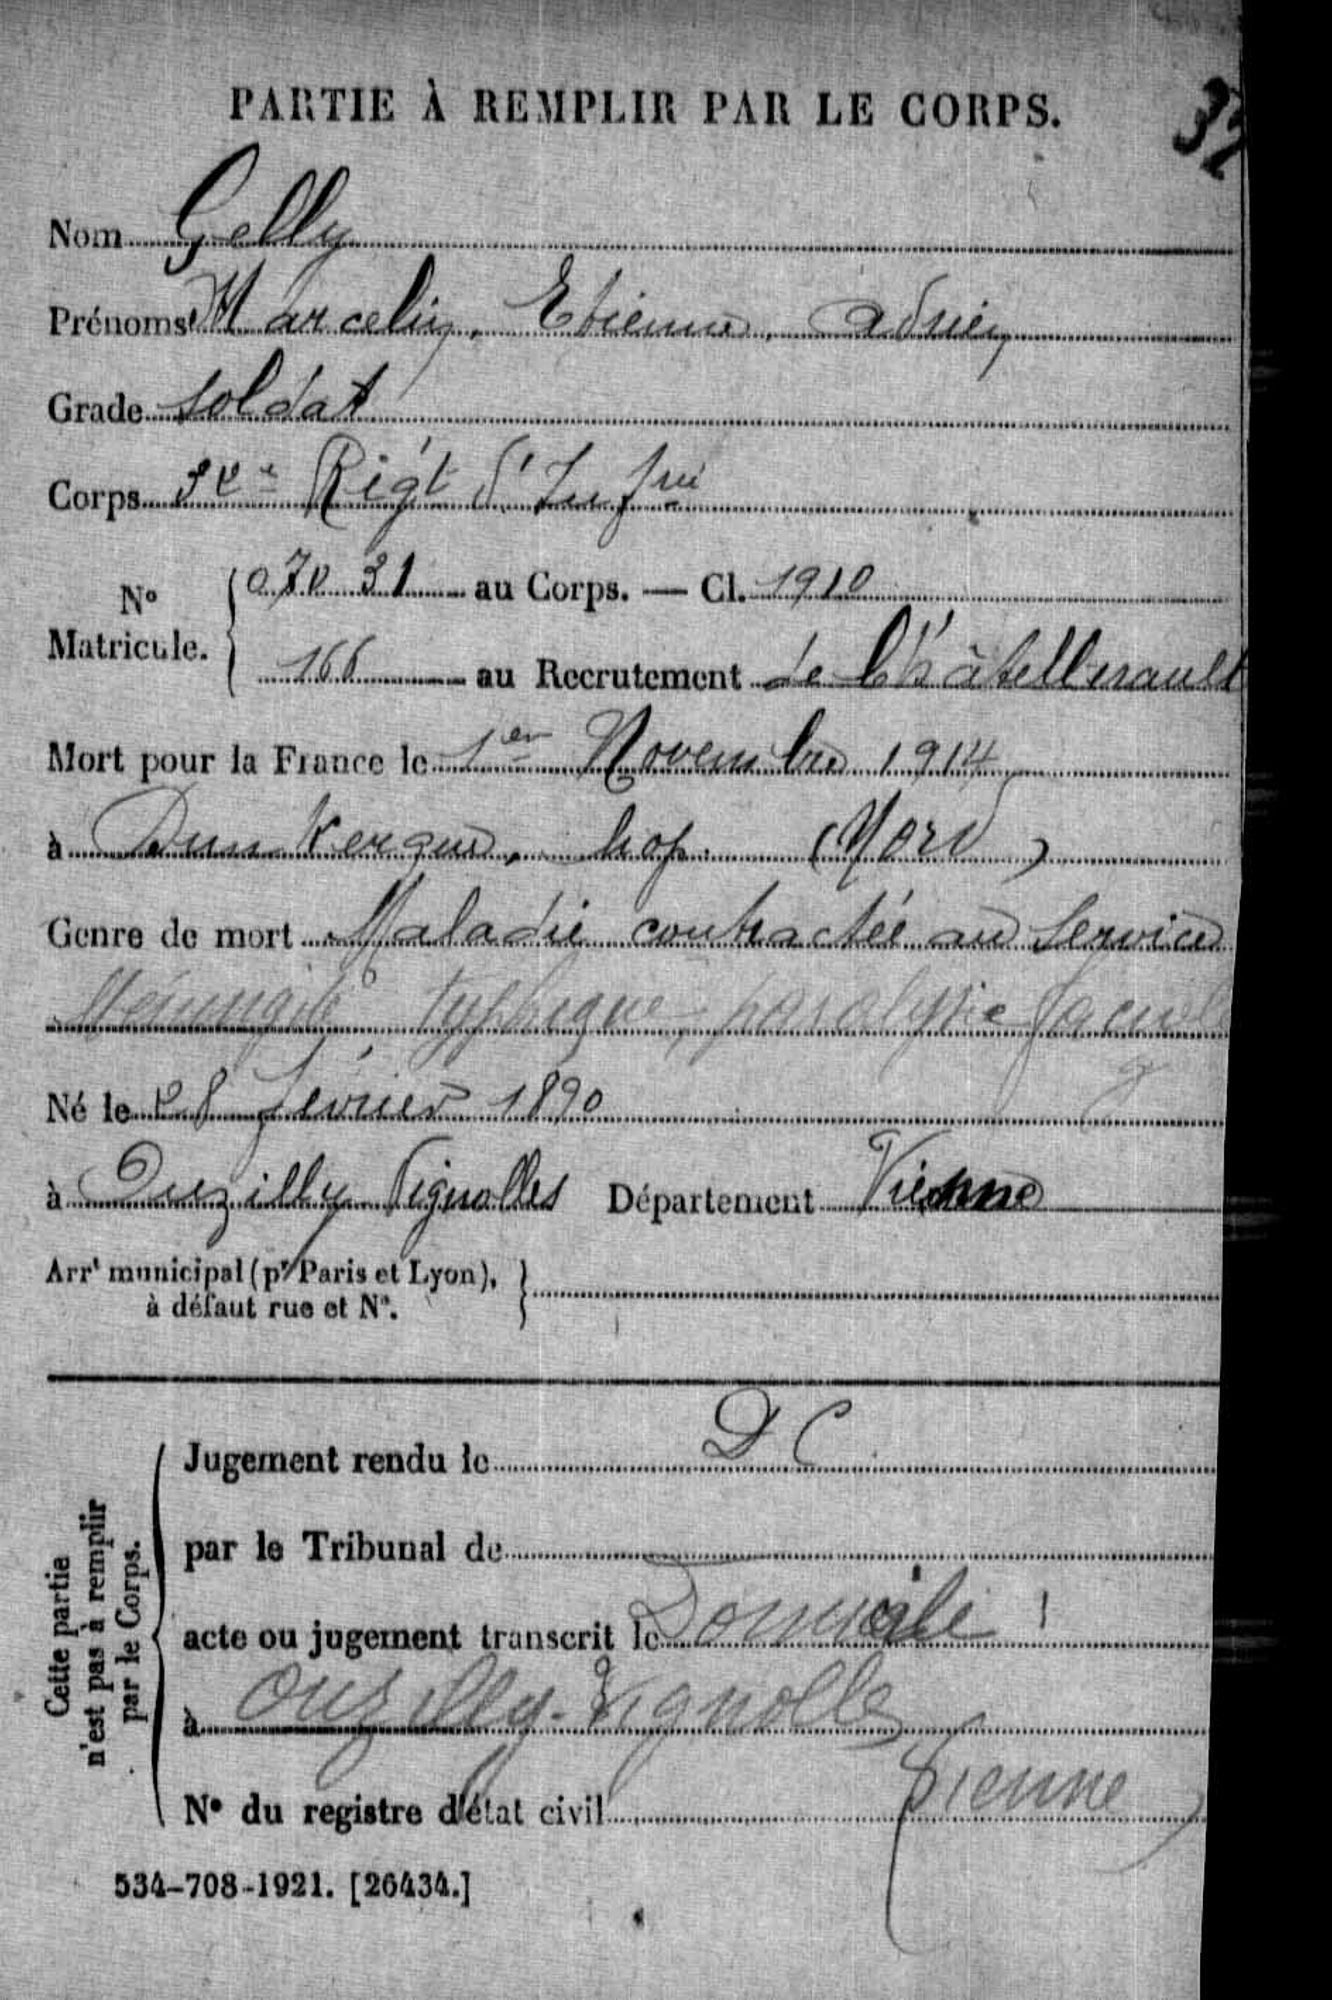 PARTIE À REMPLIR PAR LE CORPS.
32
Nom Gelly
Prénoms Marcelin, Etienne, Adrien
Grade Soldat
Corps 32e Régt d'Infrie
No Matricule. 07031 au Corps. — Cl. 1910
166 au Recrutement de Châtellerault
Mort pour la France le 1er Novembre 1914
à Dunkerque, hop. (Nord)
Genre de mort Maladie contractée au Service
Méningite typhique, paralysie faciale
Né le 28 février 1890
à Ouzilly Vignolles Département Vienne
Arrt municipal (pr Paris et Lyon),
à défaut rue et No.
Cette partie
n'est pas à remplir
par le Corps.
Jugement rendu le D C
par le Tribunal de
acte ou jugement transcrit le Domicile
à Ouzilly-Vignolles
(Vienne)
No du registre d'état civil
534-708-1921. [26434.]